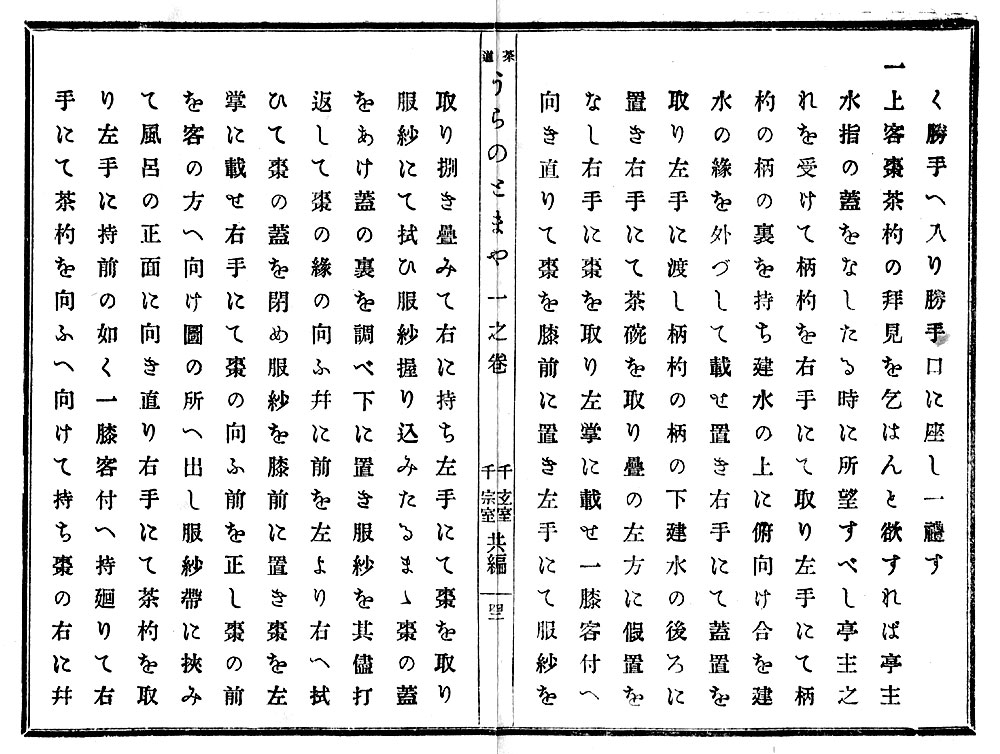 く勝手へ入り勝手口に座し一禮す
一上客棗茶杓の拜見を乞はんと欲すれば亭主
水指の蓋をなしたる時に所望すべし亭主之
れを受けて柄杓を右手にて取り左手にて柄
杓の柄の裏を持ち建水の上に俯向け合を建
水の緣を外づして載せ置き右手にて蓋置を
取り左手に渡し柄杓の柄の下建水の後ろに
置き右手にて茶碗を取り疊の左方に假置を
なし右手に棗を取り左掌に載せ一膝客付へ
向き直りて棗を膝前に置き左手にて服紗を
茶道
うらのとまや一之卷
千玄室
千宗室
共編
四
取り捌き疊みて右に持ち左手にて棗を取り
服紗にて拭ひ服紗握り込みたるまゝ棗の蓋
をあけ蓋の裏を調べ下に置き服紗を其儘打
返して棗の緣の向ふ幷に前を左より右へ拭
ひて棗の蓋を閉め服紗を膝前に置き棗を左
掌に載せ右手にて棗の向ふ前を正し棗の前
を客の方へ向け圖の所へ出し服紗帶に挾み
て風呂の正面に向き直り右手にて茶杓を取
り左手に持前の如く一膝客付へ持廻りて右
手にて茶杓を向ふへ向けて持ち棗の右に幷